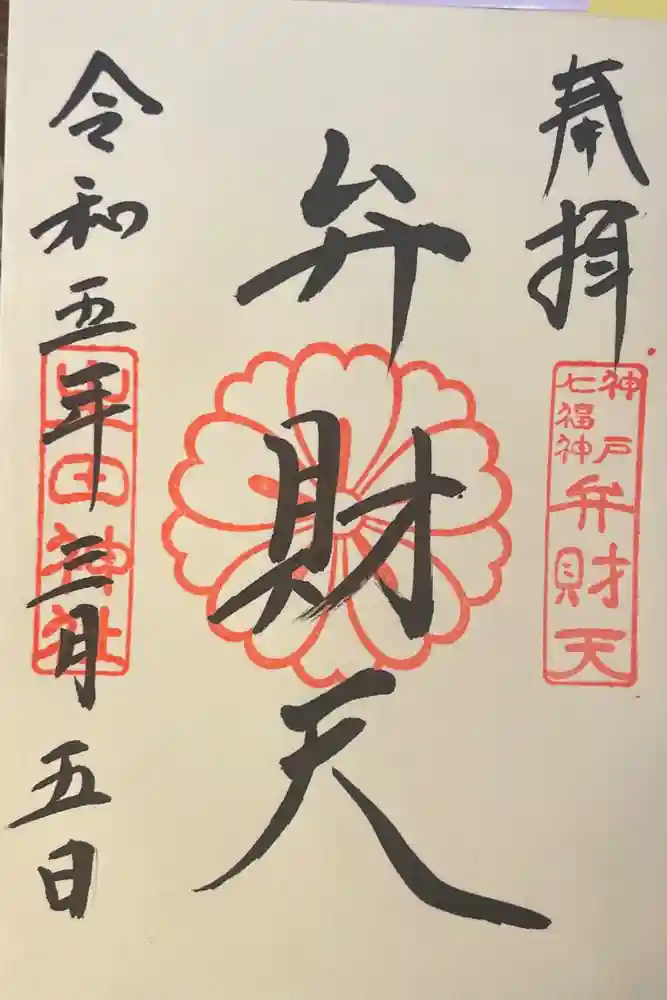 奉拝
神戸
七福神
弁財天
弁財天
令和五年三月五日
生田神社